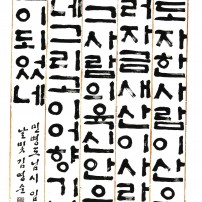 도자한사람이산
러자금새산이사라
그사람의육신안으
네그리고이어향기
이도었네
민병도님시
날빛김영소